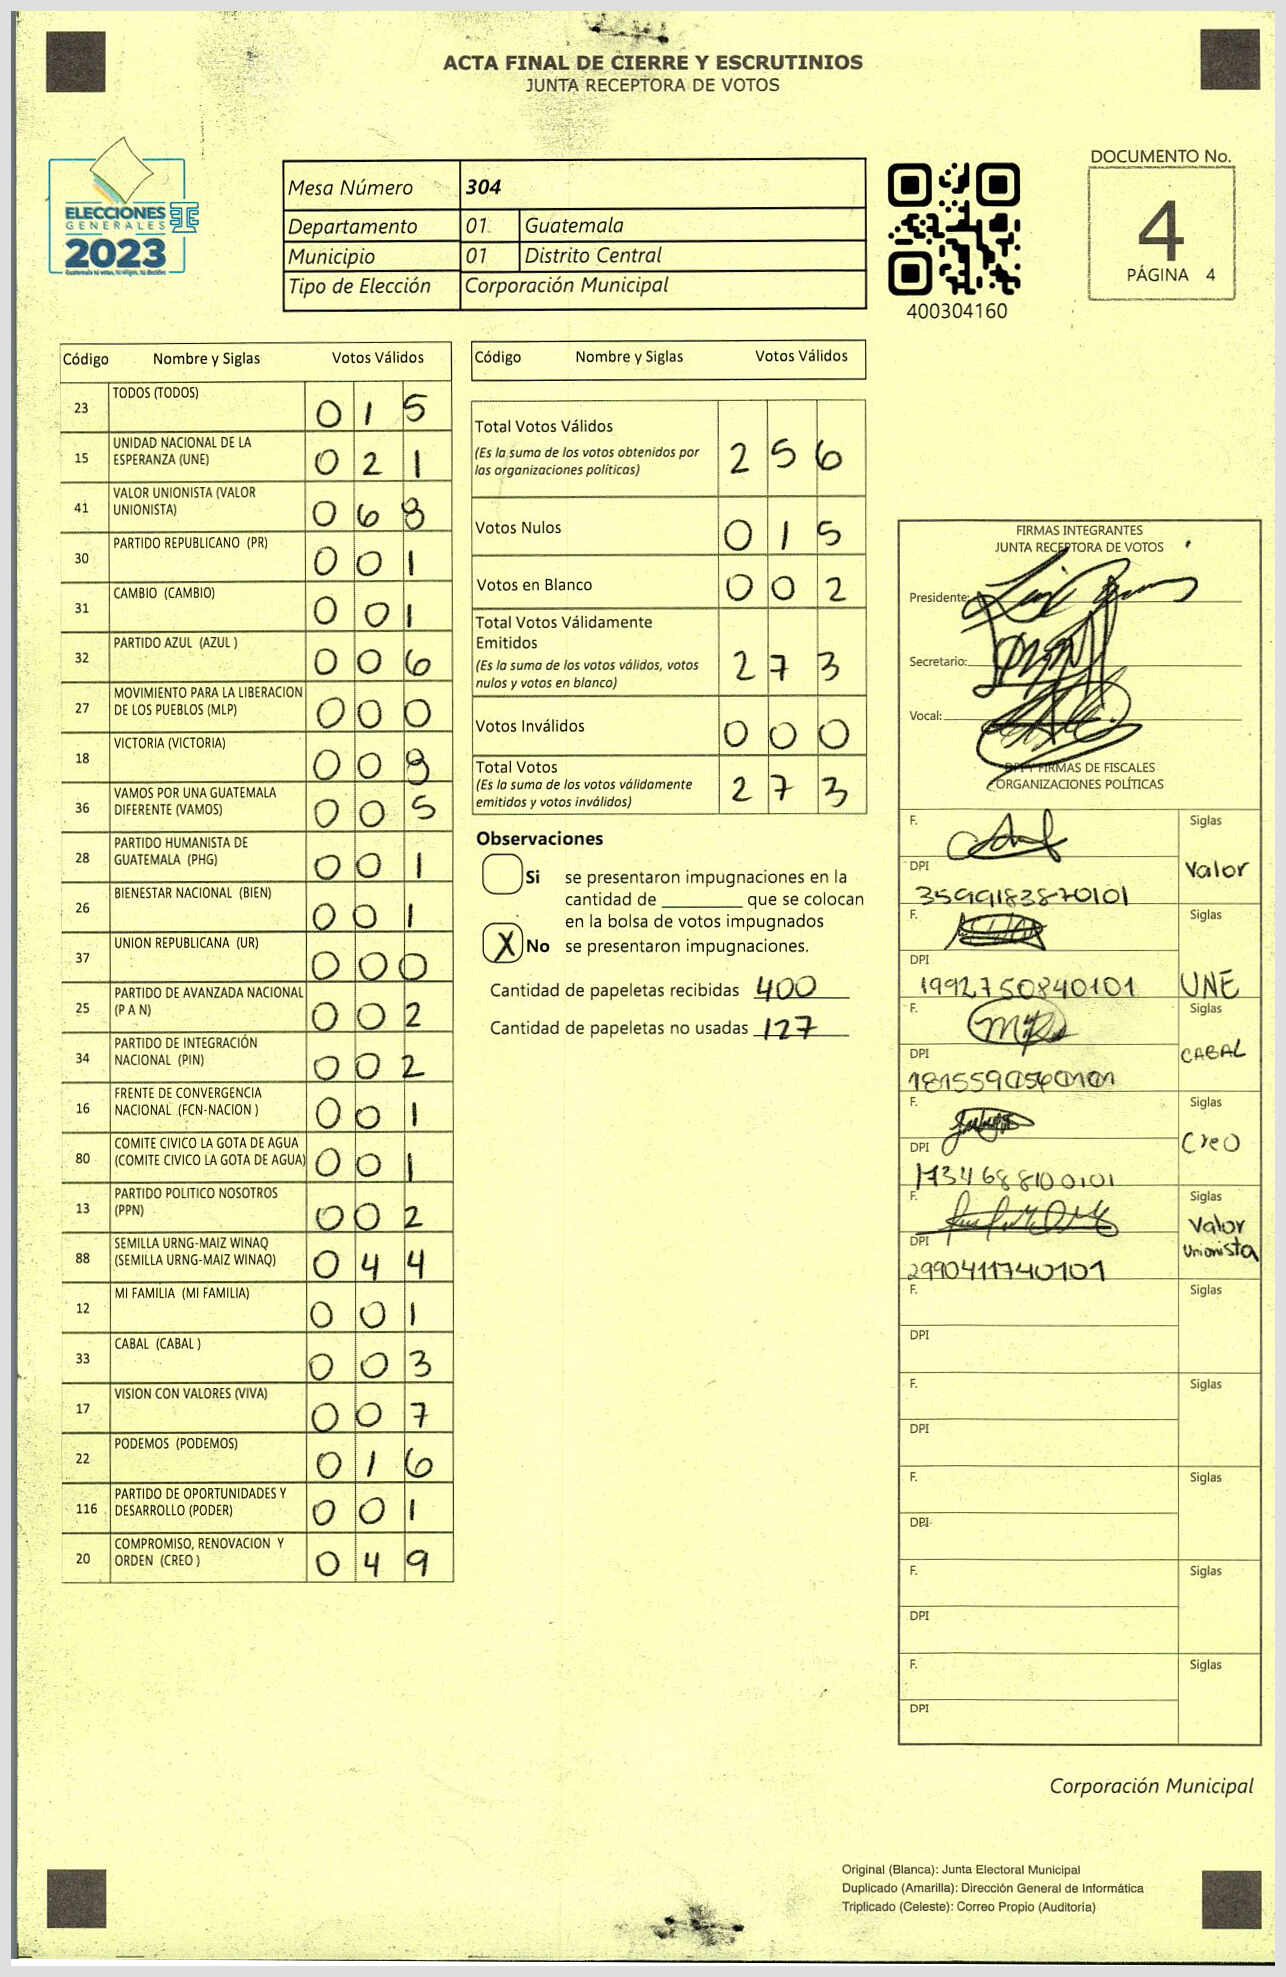 ACTA FINAL DE CIERRE Y ESCRUTINIOS
JUNTA RECEPTORA DE VOTOS
ELECCIONES
GENERALES
2023
Mesa Número 304
Departamento 01 Guatemala
Municipio 01 Distrito Central
Tipo de Elección Corporación Municipal
400304160
DOCUMENTO No.
4
PÁGINA 4
Código Nombre y Siglas Votos Válidos
23 TODOS (TODOS) 0 1 5
15 UNIDAD NACIONAL DE LA
ESPERANZA (UNE) 0 2 1
41 VALOR UNIONISTA (VALOR
UNIONISTA) 0 6 8
30 PARTIDO REPUBLICANO (PR) 0 0 1
31 CAMBIO (CAMBIO) 0 0 1
32 PARTIDO AZUL (AZUL ) 0 0 6
27 MOVIMIENTO PARA LA LIBERACION
DE LOS PUEBLOS (MLP) 0 0 0
18 VICTORIA (VICTORIA) 0 0 8
36 VAMOS POR UNA GUATEMALA
DIFERENTE (VAMOS) 0 0 5
28 PARTIDO HUMANISTA DE
GUATEMALA (PHG) 0 0 1
26 BIENESTAR NACIONAL (BIEN) 0 0 1
37 UNION REPUBLICANA (UR) 0 0 0
25 PARTIDO DE AVANZADA NACIONAL
(P A N) 0 0 2
34 PARTIDO DE INTEGRACIÓN
NACIONAL (PIN) 0 0 2
16 FRENTE DE CONVERGENCIA
NACIONAL (FCN-NACION ) 0 0 1
80 COMITE CIVICO LA GOTA DE AGUA
(COMITE CIVICO LA GOTA DE AGUA) 0 0 1
13 PARTIDO POLITICO NOSOTROS
(PPN) 0 0 2
88 SEMILLA URNG-MAIZ WINAQ
(SEMILLA URNG-MAIZ WINAQ) 0 4 4
12 MI FAMILIA (MI FAMILIA) 0 0 1
33 CABAL (CABAL ) 0 0 3
17 VISION CON VALORES (VIVA) 0 0 7
22 PODEMOS (PODEMOS) 0 1 6
116 PARTIDO DE OPORTUNIDADES Y
DESARROLLO (PODER) 0 0 1
20 COMPROMISO, RENOVACION Y
ORDEN (CREO ) 0 4 9
Código Nombre y Siglas Votos Válidos
Total Votos Válidos
(Es la suma de los votos obtenidos por
las organizaciones políticas) 2 5 6
Votos Nulos 0 1 5
Votos en Blanco 0 0 2
Total Votos Válidamente
Emitidos
(Es la suma de los votos válidos, votos
nulos y votos en blanco) 2 7 3
Votos Inválidos 0 0 0
Total Votos
(Es la suma de los votos válidamente
emitidos y votos inválidos) 2 7 3
Observaciones
Si se presentaron impugnaciones en la
cantidad de ________ que se colocan
en la bolsa de votos impugnados
X No se presentaron impugnaciones.
Cantidad de papeletas recibidas 400
Cantidad de papeletas no usadas 127
FIRMAS INTEGRANTES
JUNTA RECEPTORA DE VOTOS
Presidente:
Secretario:
Vocal:
DPI Y FIRMAS DE FISCALES
ORGANIZACIONES POLÍTICAS
F. Siglas
DPI Valor
3599183870101
F. Siglas
DPI
1992750840101 UNE
F. Siglas
DPI CABAL
F. Siglas
DPI Creo
1734688100101
F. Siglas
Valor
DPI Unionista
2990411740101
F. Siglas
DPI
F. Siglas
DPI
F. Siglas
DPI
F. Siglas
DPI
F. Siglas
DPI
Corporación Municipal
Original (Blanca): Junta Electoral Municipal
Duplicado (Amarilla): Dirección General de Informática
Triplicado (Celeste): Correo Propio (Auditoría)